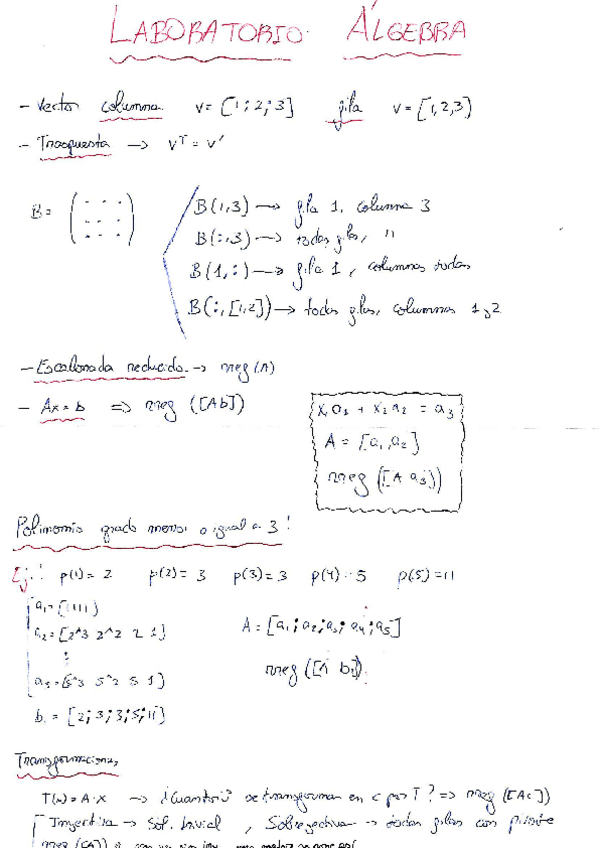 LABORATORIO ÁLGEBRA
- Vector columna v = [1;2;3] fila v = [1,2,3]
- Traspuesta → vᵀ = v'
B = B(1,3) → fila 1, columna 3
B(:,3) → todas filas, "
B(1,:) → fila 1, columnas todas
B(:,[1,2]) → todas filas, columnas 1,2
- Escalonada reducida → rreg(A)
- Ax = b ⇒ rreg([Ab])
x₁a₁ + x₂a₂ = a₃
A = [a₁,a₂]
rreg([A a₃])
Polinomio grado menor o igual a 3:
Ej: p(1) = 2 p(2) = 3 p(3) = 3 p(4) = 5 p(5) = 11
a₁ = [1 1 1 1]
a₂ = [2^3 2^2 2 1]
⋮
a₅ = [5^3 5^2 5 1]
b = [2;3;3;5;11]
A = [a₁;a₂;a₃;a₄;a₅]
rreg([A b])
Transformaciones
T(x) = A·x → ¿Cuantos se transforman en c por T? ⇒ rreg([Ac])
Inyectiva → Sol. trivial, Sobreyectiva → todas filas con pivote